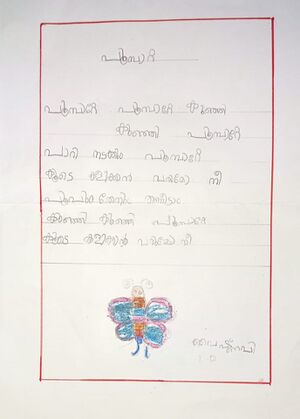 പൂമ്പാറ്റ
പൂമ്പാറ്റേ പൂമ്പാറ്റേ കുഞ്ഞി
കുഞ്ഞി പൂമ്പാറ്റേ
പാറി നടക്കും പൂമ്പാറ്റേ
കൂടെ കളിക്കാൻ വരുമോ നീ
പൂവും തേനും തന്നീടാം
കുഞ്ഞി കുഞ്ഞി പൂമ്പാറ്റേ
കൂടെ കളിക്കാൻ വരുമോ നീ